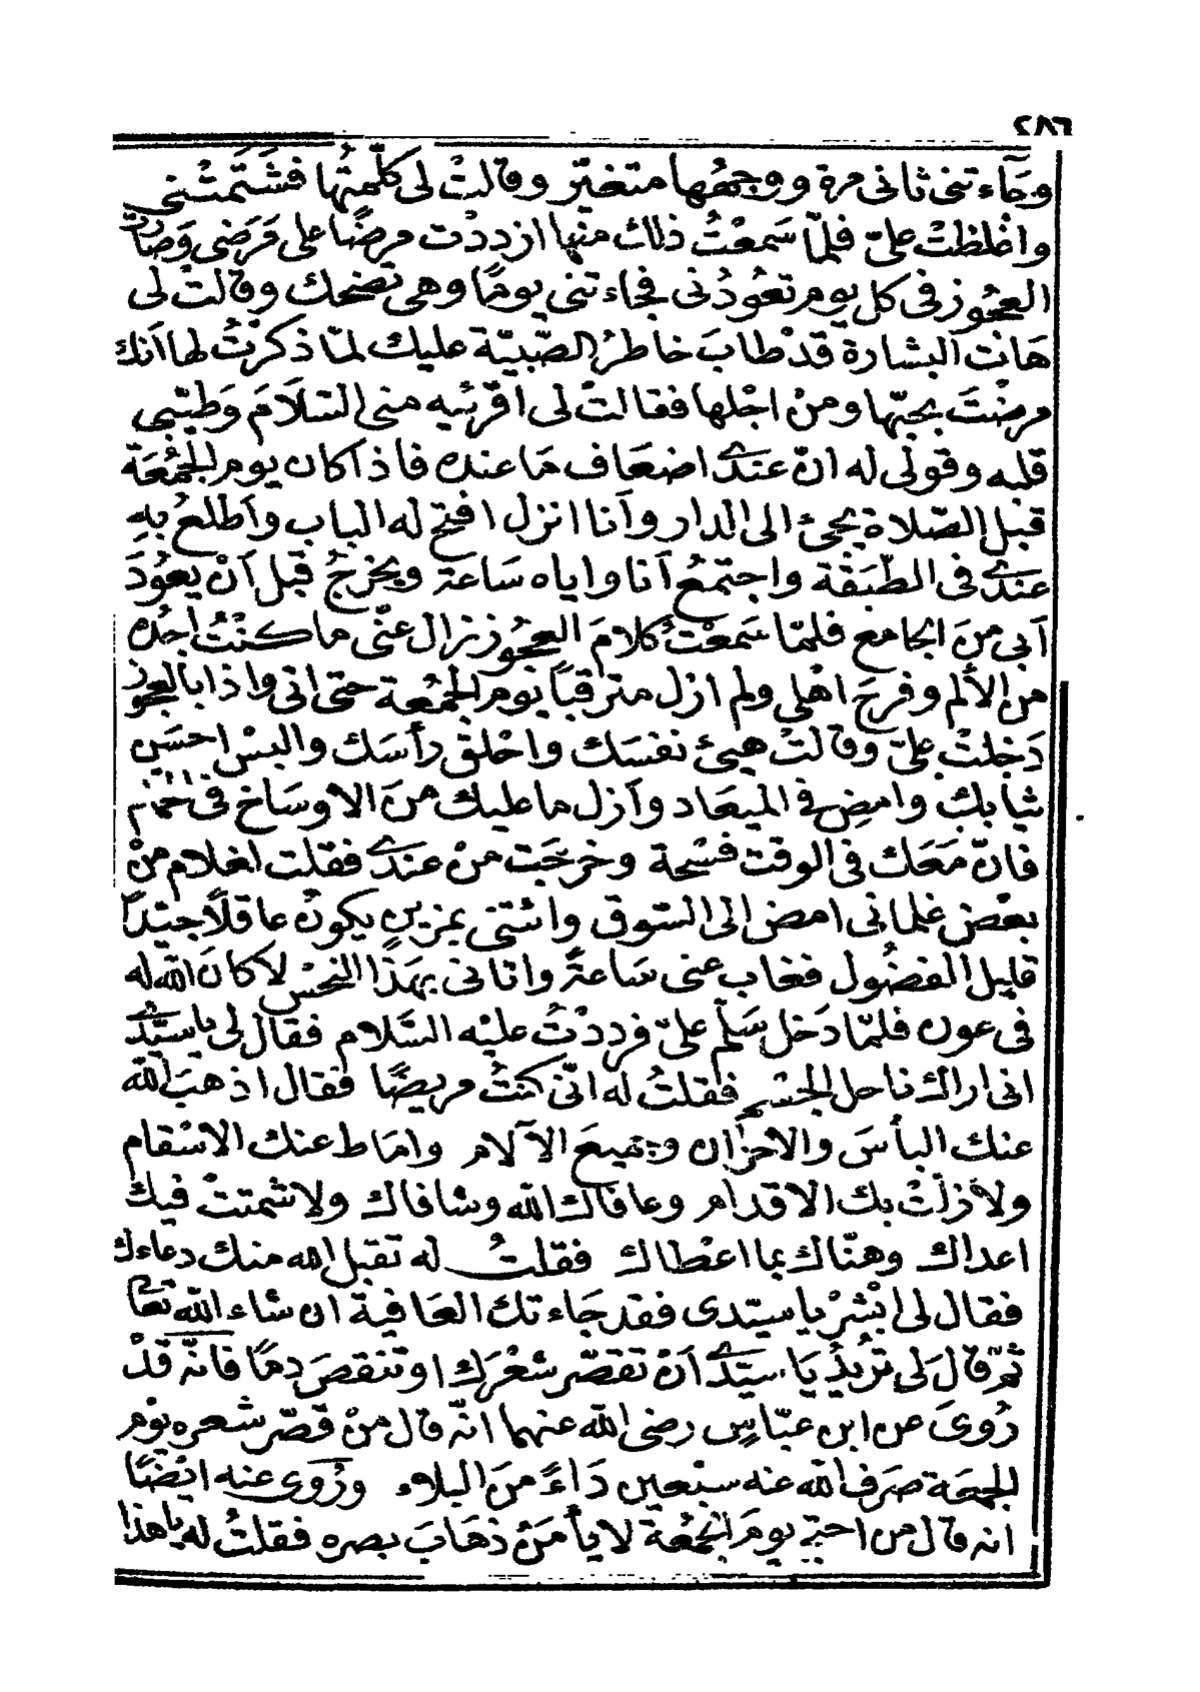 ٢٨٦
وجَآءتنى ثانى مرة ووجهُها متغيّر وقالتْ لى كلّمتُها فشَتَمتْنى
واغْلظتْ علىّ فلمّا سَمعْتُ ذلك منها ازددْت مرضًا على مَرَضى وَصَارت
العجُوز فى كل يوم تعُودُنى فجاءتنى يومًا وهى تضحك وقالتْ لى
هَات البشارة قدْ طابَ خاطرُ الصّبيّة عليك لمّا ذكرْتُ لها اَنك
مرضْتَ بحبّها ومنْ اجْلها فقالتْ لى اقرئيه منى السّلَامَ وَطيّبى
قلبه وقولى له انّ عندى اضعَاف مَا عنده فاذا كان يوم الجمُعَة
قبْل الصّلاة يجئ الى الدار وأنا انزل افتح له الباب واَطلعُ بهِ
عندى فى الطّبَقة واجتمعُ اَنا واياه سَاعة ويخرجُ قبل اَنْ يعُودَ
اَبى منَ الجامع فلمّا سَمعْتُ كلامَ العجُوز زال عنّى ما كنْتُ اجدُه
من الألم وفرحَ اهْلى ولم ازل مترقّباً يوم الجمُعة حتى اتى واذا بالعجوز
دَخلتْ علىّ وقالتْ هيئ نفسَك واحْلقْ رأسَك والبسْ احسَن
ثيابك وامضِ فى الميعَاد وأزل ما عليك منَ الاوسَاخ فى حمّام
فانّ مَعَك فى الوقت فسْحة وخرجَت منْ عندى فقلت لغلام منْ
بعْض غلمانى امض الى السّوق وائتنى بمزينٍ يكونُ عاقلاً جيّداً
قليل الفضُول فغاب عنى سَاعةً واتانى بهَذا النحسْ لا كانَ الله له
فى عون فلمّا دَخل سَلّم علىّ فرددْتُ عليْه السَّلام فقال لى يا سيّدى
انى اراك ناحل الجسْم فقلتُ له انّى كنتُ مريضًا فقال اذهبَ الله
عنك البأسَ والاحزان وجميعَ الآلام وامَاط عنك الاسْقام
ولا زلّتْ بك الاقدام وعافاك الله وشافاك ولا شمتتْ فيك
اعداك وهنّاك بما اعْطاك فقلتُ له تقبل الله منك دعاءك
فقال لى ابْشرْ يا سيّدى فقد جَاءتك العَافية ان شاء الله تعَالى
ثمّ قال لى تُريدُ يَا سيّدى اَنْ تقصّر شعْرك او تنقصَ دمًا فانّه قدْ
رُوىَ عن ابن عبّاسٍ رضى الله عنهما انّه قال منْ قصّر شعره يوْم
الجمعَة صَرف الله عنه سبْعين دَاءً منَ البلاء ورُوى عنه ايْضًا
انه قال من احتجم يومَ الجمُعة لا يأْمَنُ ذهَابَ بصره فقلتُ له يا هذا